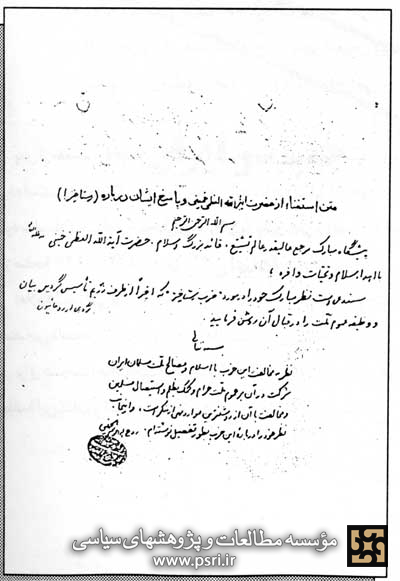 متن استفتاء از حضرت آیة الله العظمی خمینی و پاسخ ایشان درباره (رستاخیز)
بسم الله الرحمن الرحیم
پیشگاه مبارک مرجع عالیقدر عالم تشیع، قائد بزرگ اسلام، حضرت آیة الله العظمی خمینی
با اهداء سلام و تحیات وافره؛
مستدعی است نظر مبارک خود را در مورد حزب رستاخیز که اخیراً از طرف رژیم تأسیس گردیده بیان
و وظیفه عموم ملت را در قبال آن روشن فرمایید.
گروهی از روحانیون
بسمه تعالی
نظر به مخالفت این حزب با اسلام و مصالح ملت مسلمان ایران
شرکت در آن بر عموم ملت حرام و کمک به ظلم و استیصال مسلمین
و مخالفت با آن از روشنترین موارد نهی از منکر است. و اینجانب
نظر خود را درباره این حزب بطور تفصیل نوشته‌ام. روح الله الموسوی الخمینی
مؤسسه مطالعات و پژوهشهای سیاسی
www.psri.ir